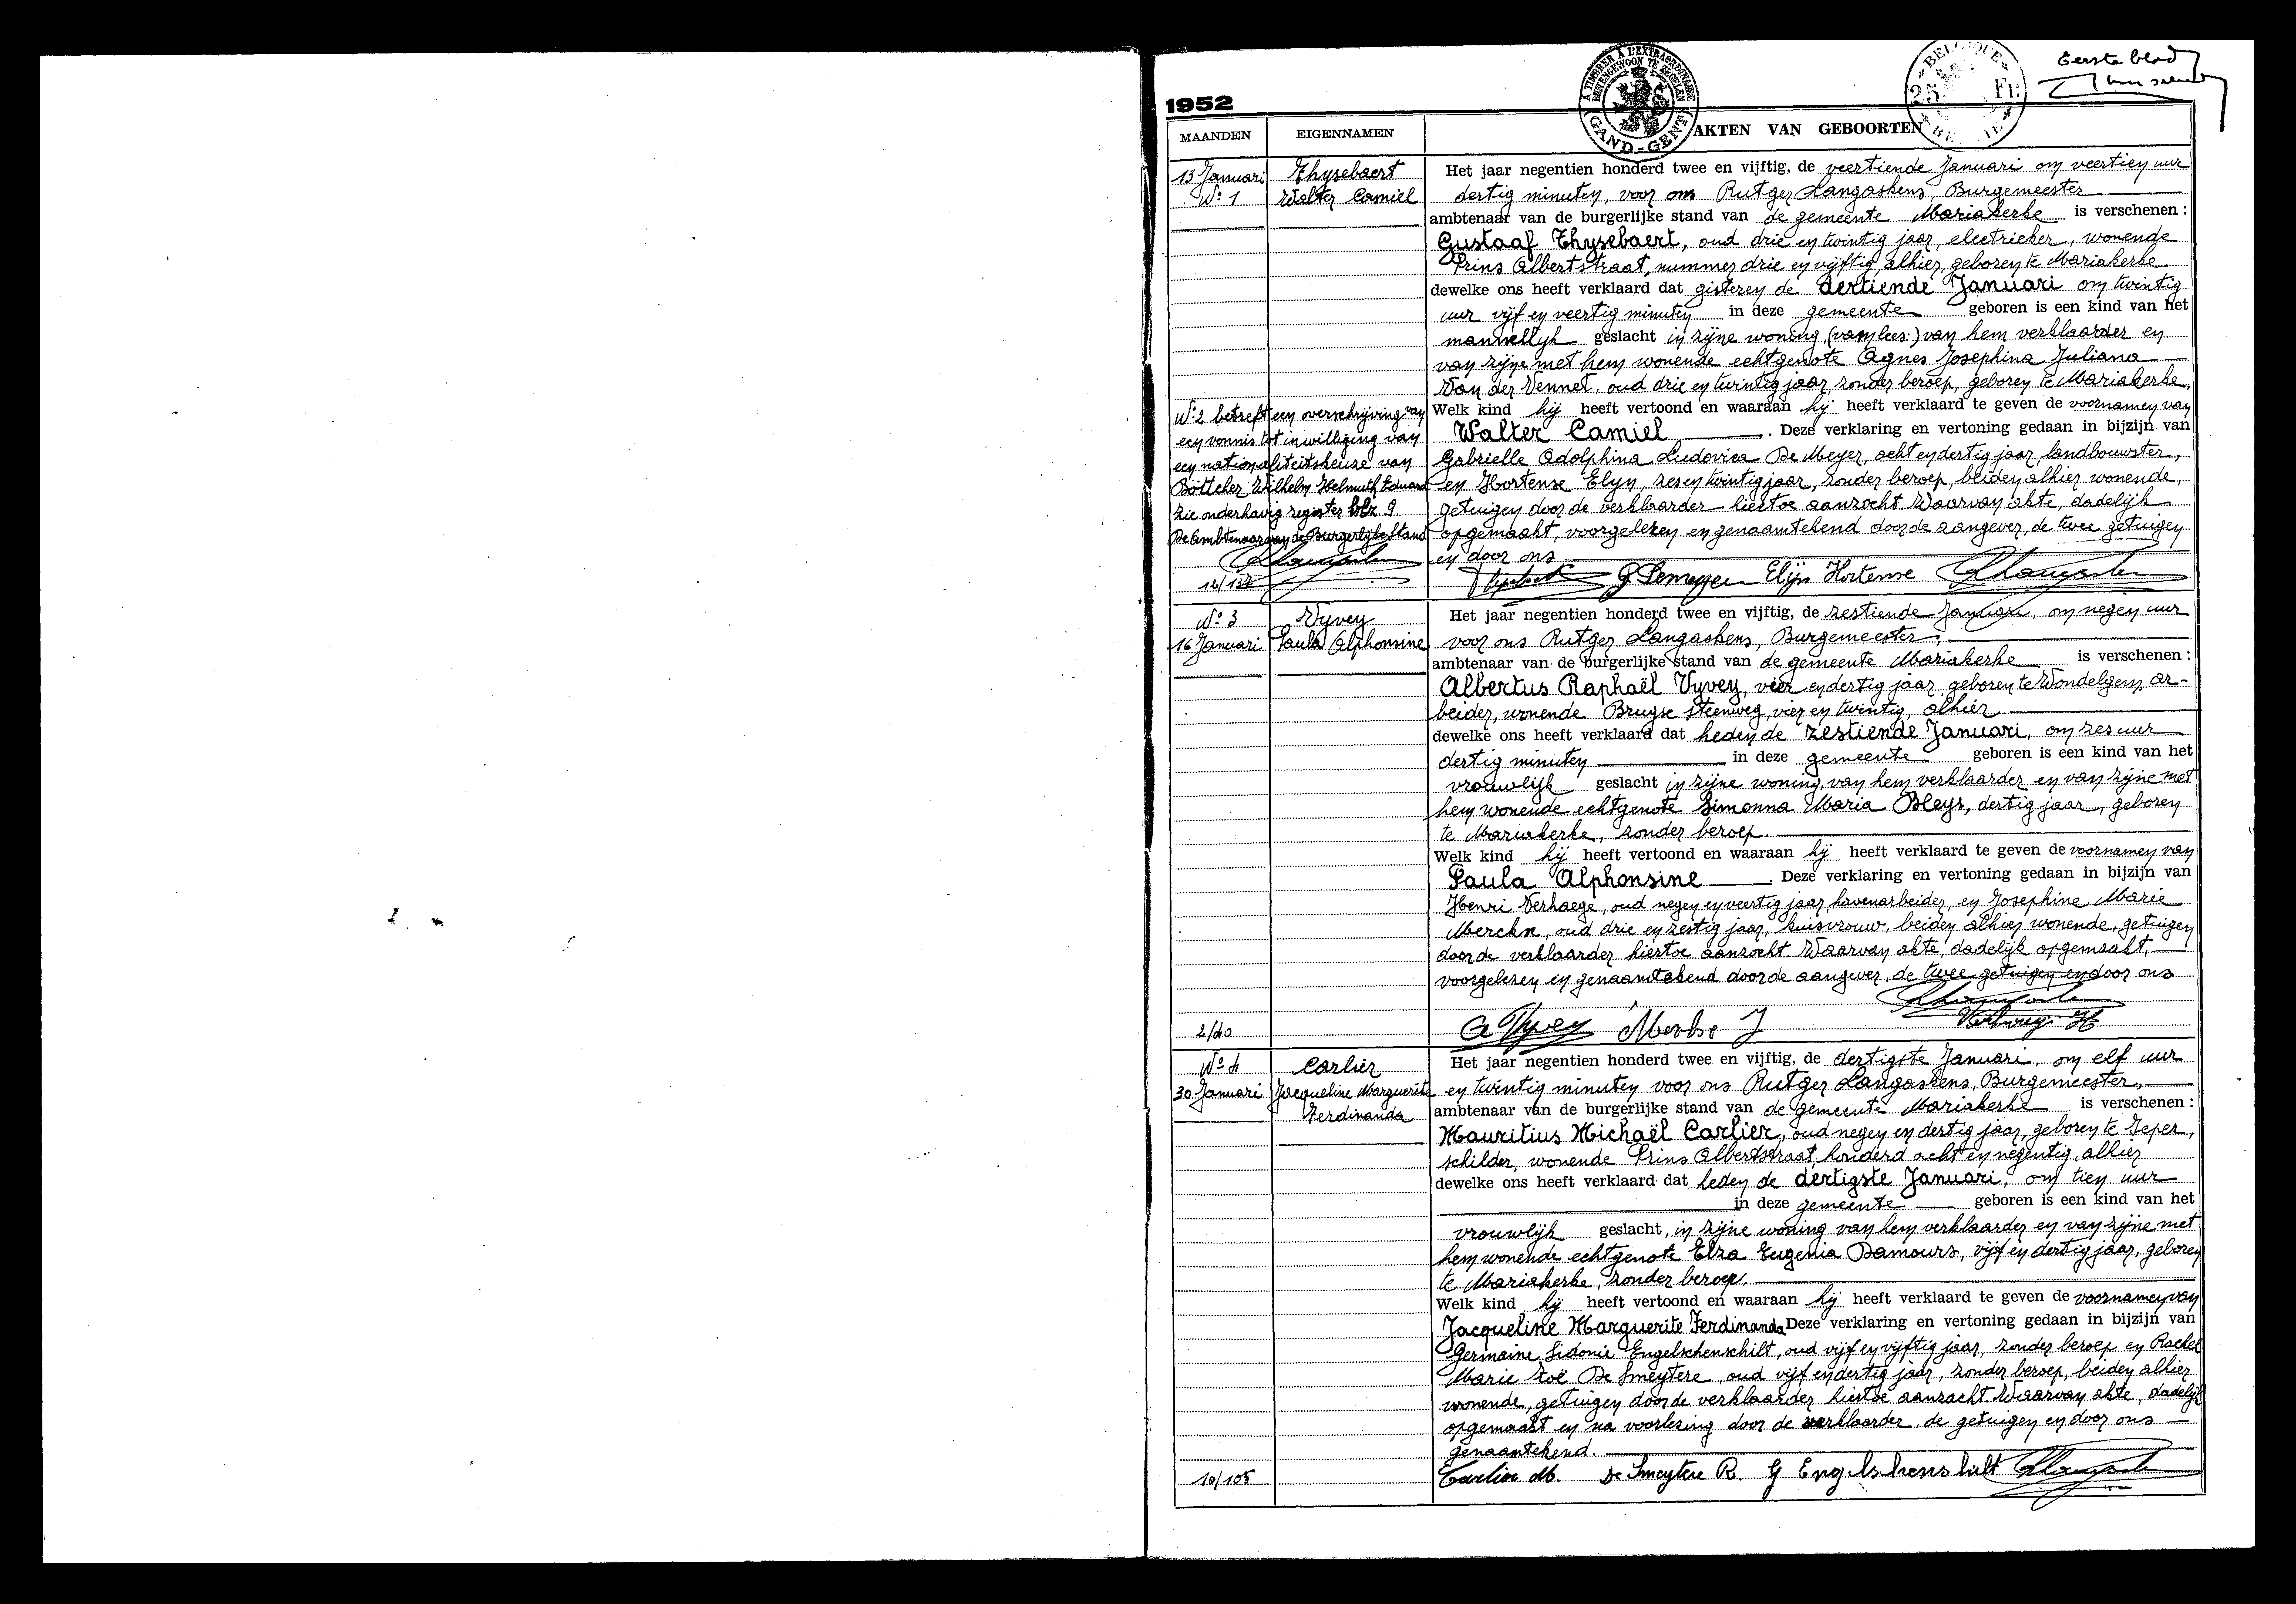 Eerste blad
1952
A TIMBRER A L'EXTRAORDINAIRE
BUITENGEWOON TE ZEGELEN
GAND-GENT
BELGIQUE
25 FR
MAANDEN EIGENNAMEN AKTEN VAN GEBOORTEN
13 Januari
N° 1
Thysebaert
Walter Camiel
Het jaar negentien honderd twee en vijftig, de veertiende Januari om veertien uur
dertig minuten, voor ons Rutger Langaskens, Burgemeester
ambtenaar van de burgerlijke stand van de gemeente Mariakerke is verschenen :
Gustaaf Thysebaert, oud drie en twintig jaar, electrieker, wonende
Prins Albertstraat, nummer drie en vijftig, alhier, geboren te Mariakerke
dewelke ons heeft verklaard dat gisteren de dertiende Januari om twintig
uur vijf en veertig minuten in deze gemeente geboren is een kind van het
mannelijk geslacht in zijne woning (van lees:) van hem verklaarder en
van zijne met hem wonende echtgenote Agnes Josephina Juliana
Van der Vennet, oud drie en twintig jaar, zonder beroep, geboren te Mariakerke.
Welk kind hij heeft vertoond en waaraan hij heeft verklaard te geven de voornamen van
Walter Camiel. Deze verklaring en vertoning gedaan in bijzijn van
Gabrielle Adolphina Ludovica De Meyer, acht en dertig jaar, landbouwster,
en Hortense Elyn, zes en twintig jaar, zonder beroep, beiden alhier wonende,
getuigen door de verklaarder hiertoe aanzocht. Waarvan akte, dadelijk
opgemaakt, voorgelezen en genaamtekend door de aangever, de twee getuigen
en door ons
G Demeyer Elijn Hortense
N° 2 betreft een overschrijving van
een vonnis tot inwilliging van
een nationaliteitskeuze van
Böttcher Wilhelm Helmuth Eduard
Zie onderhavig register blz 9
De Ambtenaar van de Burgerlijke Stand
N° 3
16 Januari
Vyvey
Paula Alphonsine
Het jaar negentien honderd twee en vijftig, de zestiende Januari, om negen uur
voor ons Rutger Langaskens, Burgemeester,
ambtenaar van de burgerlijke stand van de gemeente Mariakerke is verschenen :
Albertus Raphaël Vyvey, vier en dertig jaar, geboren te Wondelgem, ar-
beider, wonende Brugse steenweg, vier en twintig, alhier
dewelke ons heeft verklaard dat heden de zestiende Januari, om zes uur
dertig minuten in deze gemeente geboren is een kind van het
vrouwelijk geslacht in zijne woning, van hem verklaarder en van zijne met
hem wonende echtgenote Simonna Maria Bleys, dertig jaar, geboren
te Mariakerke, zonder beroep.
Welk kind hij heeft vertoond en waaraan hij heeft verklaard te geven de voornamen van
Paula Alphonsine. Deze verklaring en vertoning gedaan in bijzijn van
Henri Verhaege, oud negen en veertig jaar, havenarbeider, en Josephine Marie
Merckx, oud drie en zestig jaar, huisvrouw, beiden alhier wonende, getuigen
door de verklaarder hiertoe aanzocht. Waarvan akte, dadelijk opgemaakt,
voorgelezen en genaamtekend door de aangever, de twee getuigen en door ons
2/40
A Vyvey
N° 4
30 Januari
Carlier
Jacqueline Marguerite
Ferdinanda
Het jaar negentien honderd twee en vijftig, de dertigste Januari, om elf uur
en twintig minuten voor ons Rutger Langaskens, Burgemeester,
ambtenaar van de burgerlijke stand van de gemeente Mariakerke is verschenen :
Mauritius Michaël Carlier, oud negen en dertig jaar, geboren te Ieper,
schilder, wonende Prins Albertstraat, honderd acht en negentig, alhier
dewelke ons heeft verklaard dat heden de dertigste Januari, om tien uur
in deze gemeente geboren is een kind van het
vrouwlijk geslacht, in zijne woning van hem verklaarder en van zijne met
hem wonende echtgenote Elza Eugenia Damours, vijf en dertig jaar, geboren
te Mariakerke, zonder beroep.
Welk kind hij heeft vertoond en waaraan hij heeft verklaard te geven de voornamen van
Jacqueline Marguerite Ferdinanda Deze verklaring en vertoning gedaan in bijzijn van
Germaine Sidonie Engelschenschilt, oud vijf en vijftig jaar, zonder beroep en Rachel
Marie Zoë De Smeytere, oud vijf en dertig jaar, zonder beroep, beiden alhier
wonende, getuigen door de verklaarder hiertoe aanzocht. Waarvan akte, dadelijk
opgemaakt en na voorlezing door de verklaarder, de getuigen en door ons
genaamtekend.
10/105
Carlier M. De Smeytere R. G Engelshenshilt